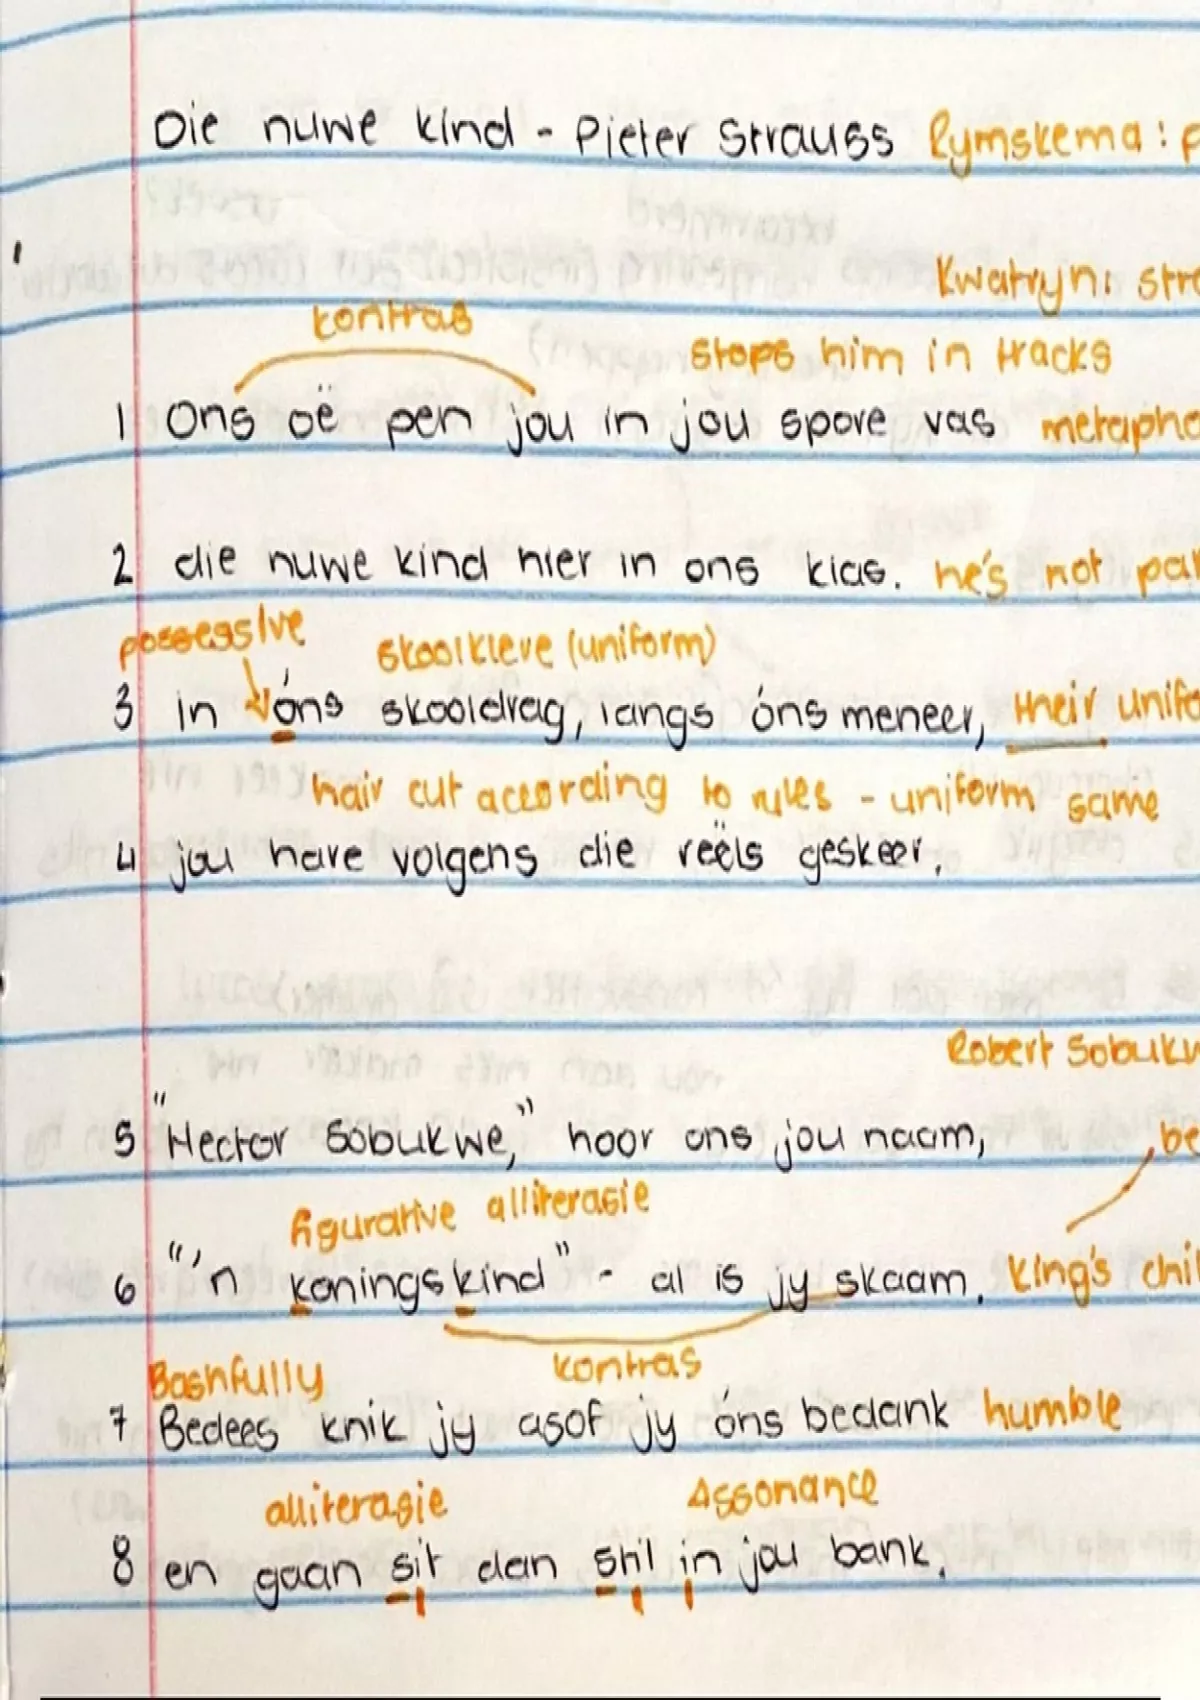 Die nuwe kind - Pieter Strauss Rymskema: p
Kwatryn: stro
kontras
stops him in tracks
1 Ons oë pen jou in jou spore vas metapho
2 die nuwe kind hier in ons klas. he's not par
possessive
skoolklere (uniform)
3 in óns skooldrag, langs óns meneer, their unifo
hair cut according to rules - uniform same
4 jou hare volgens die reëls geskeer.
Robert Sobukw
5 "Hector Sobukwe," hoor ons jou naam,
be
figurative alliterasie
6 "'n koningskind" - al is jy skaam. King's chil
kontras
Bashfully
7 Bedees knik jy asof jy óns bedank humble
alliterasie Assonance
8 en gaan sit dan stil in jou bank.